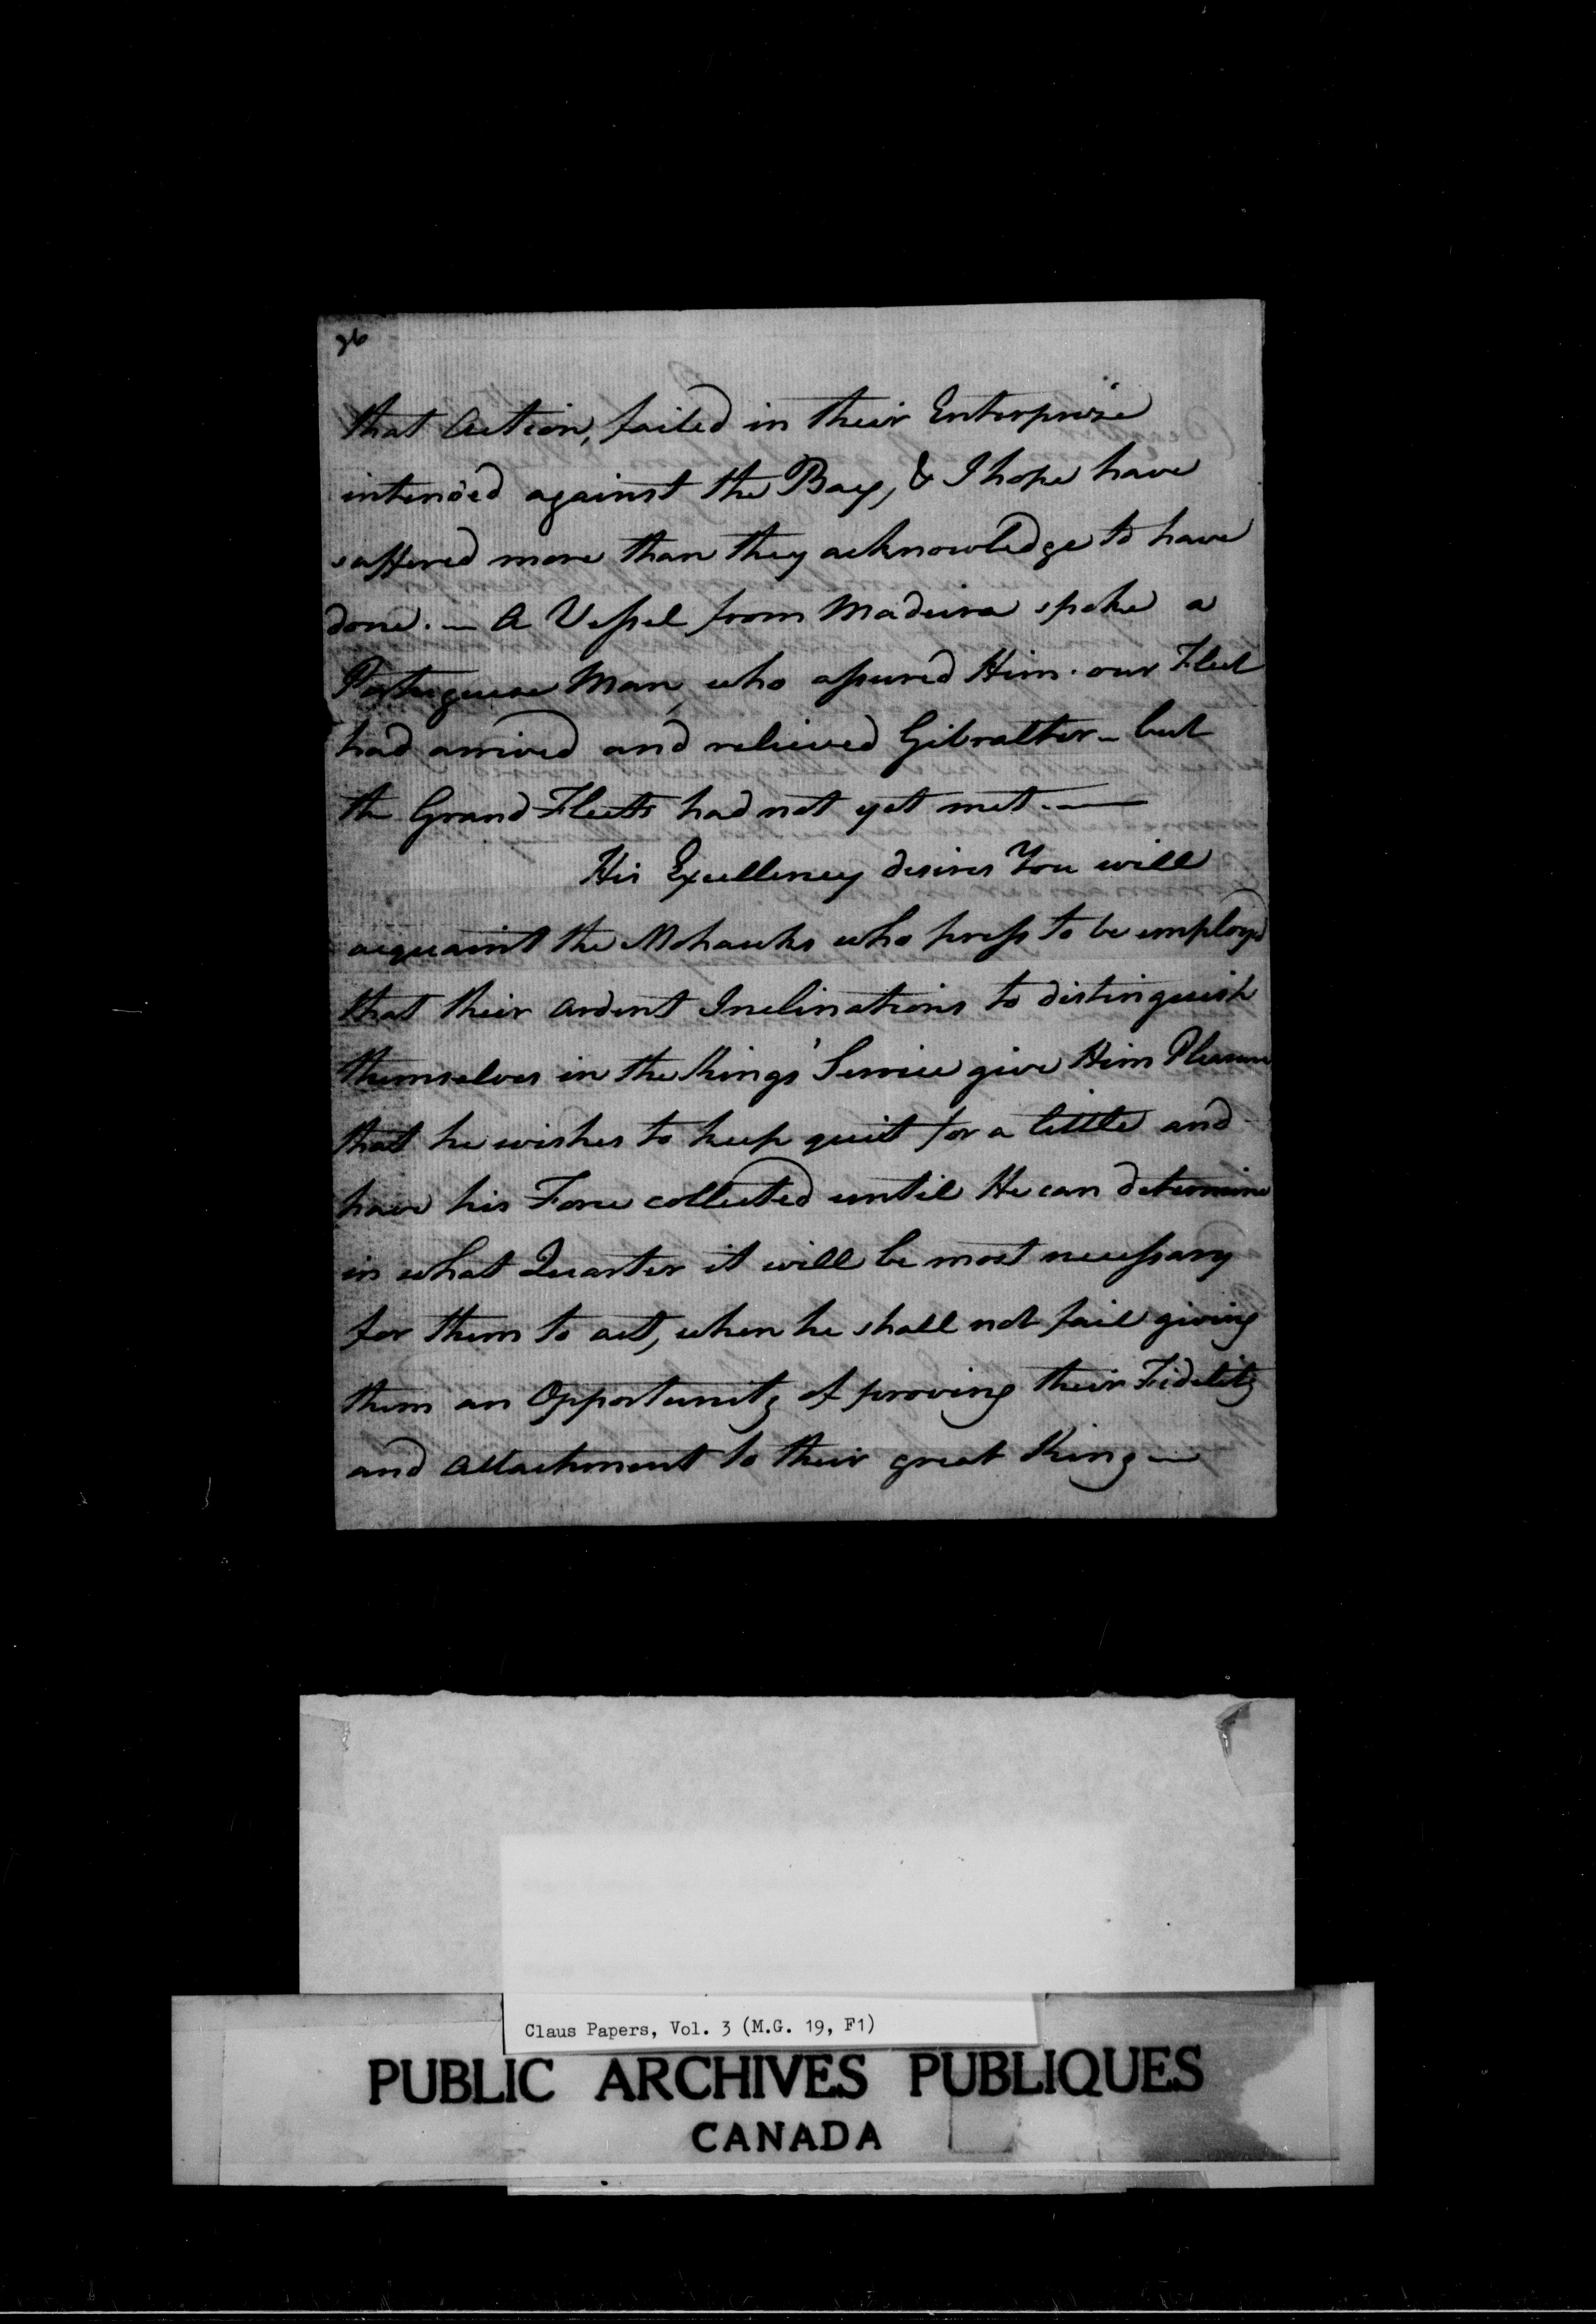 26
that Action, failed in their Enterprize
intended against the Bay, & I hope have
suffered more than they acknowledge to have
done. — A Vessel from Madeira spoke a
Portuguese Man, who assured Him our Fleet
had arrived and relieved Gibralter — but
the Grand Fleets had not yet met. —
His Excellency desires You will
acquaint the Mohawks who press to be employ'd
that their ardent Inclinations to distinguish
themselves in the Kings' Service give Him Pleasure
that he wishes to keep quiet for a little and
have his Force collected until He can determine
in what Quarter it will be most necessary
for them to act, when he shall not fail giving
them an Opportunity of proving their Fidelity
and Attachment to their great King —
Claus Papers, Vol. 3 (M.G. 19, F1)
PUBLIC ARCHIVES PUBLIQUES
CANADA